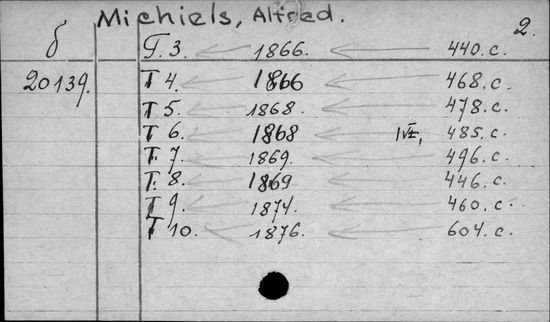 Michiels, Alfred.
2.
б Т. 3. 1866. 440. с.
20139. Т 4. 1866 468. с.
Т 5. 1868. 478. с.
Т 6. 1868 IVI, 485. с.
Т. 7. 1869. 496. с.
Т. 8. 1869 446. с.
Т 9. 1874. 460. с.
Т 10. 1876. 604. с.